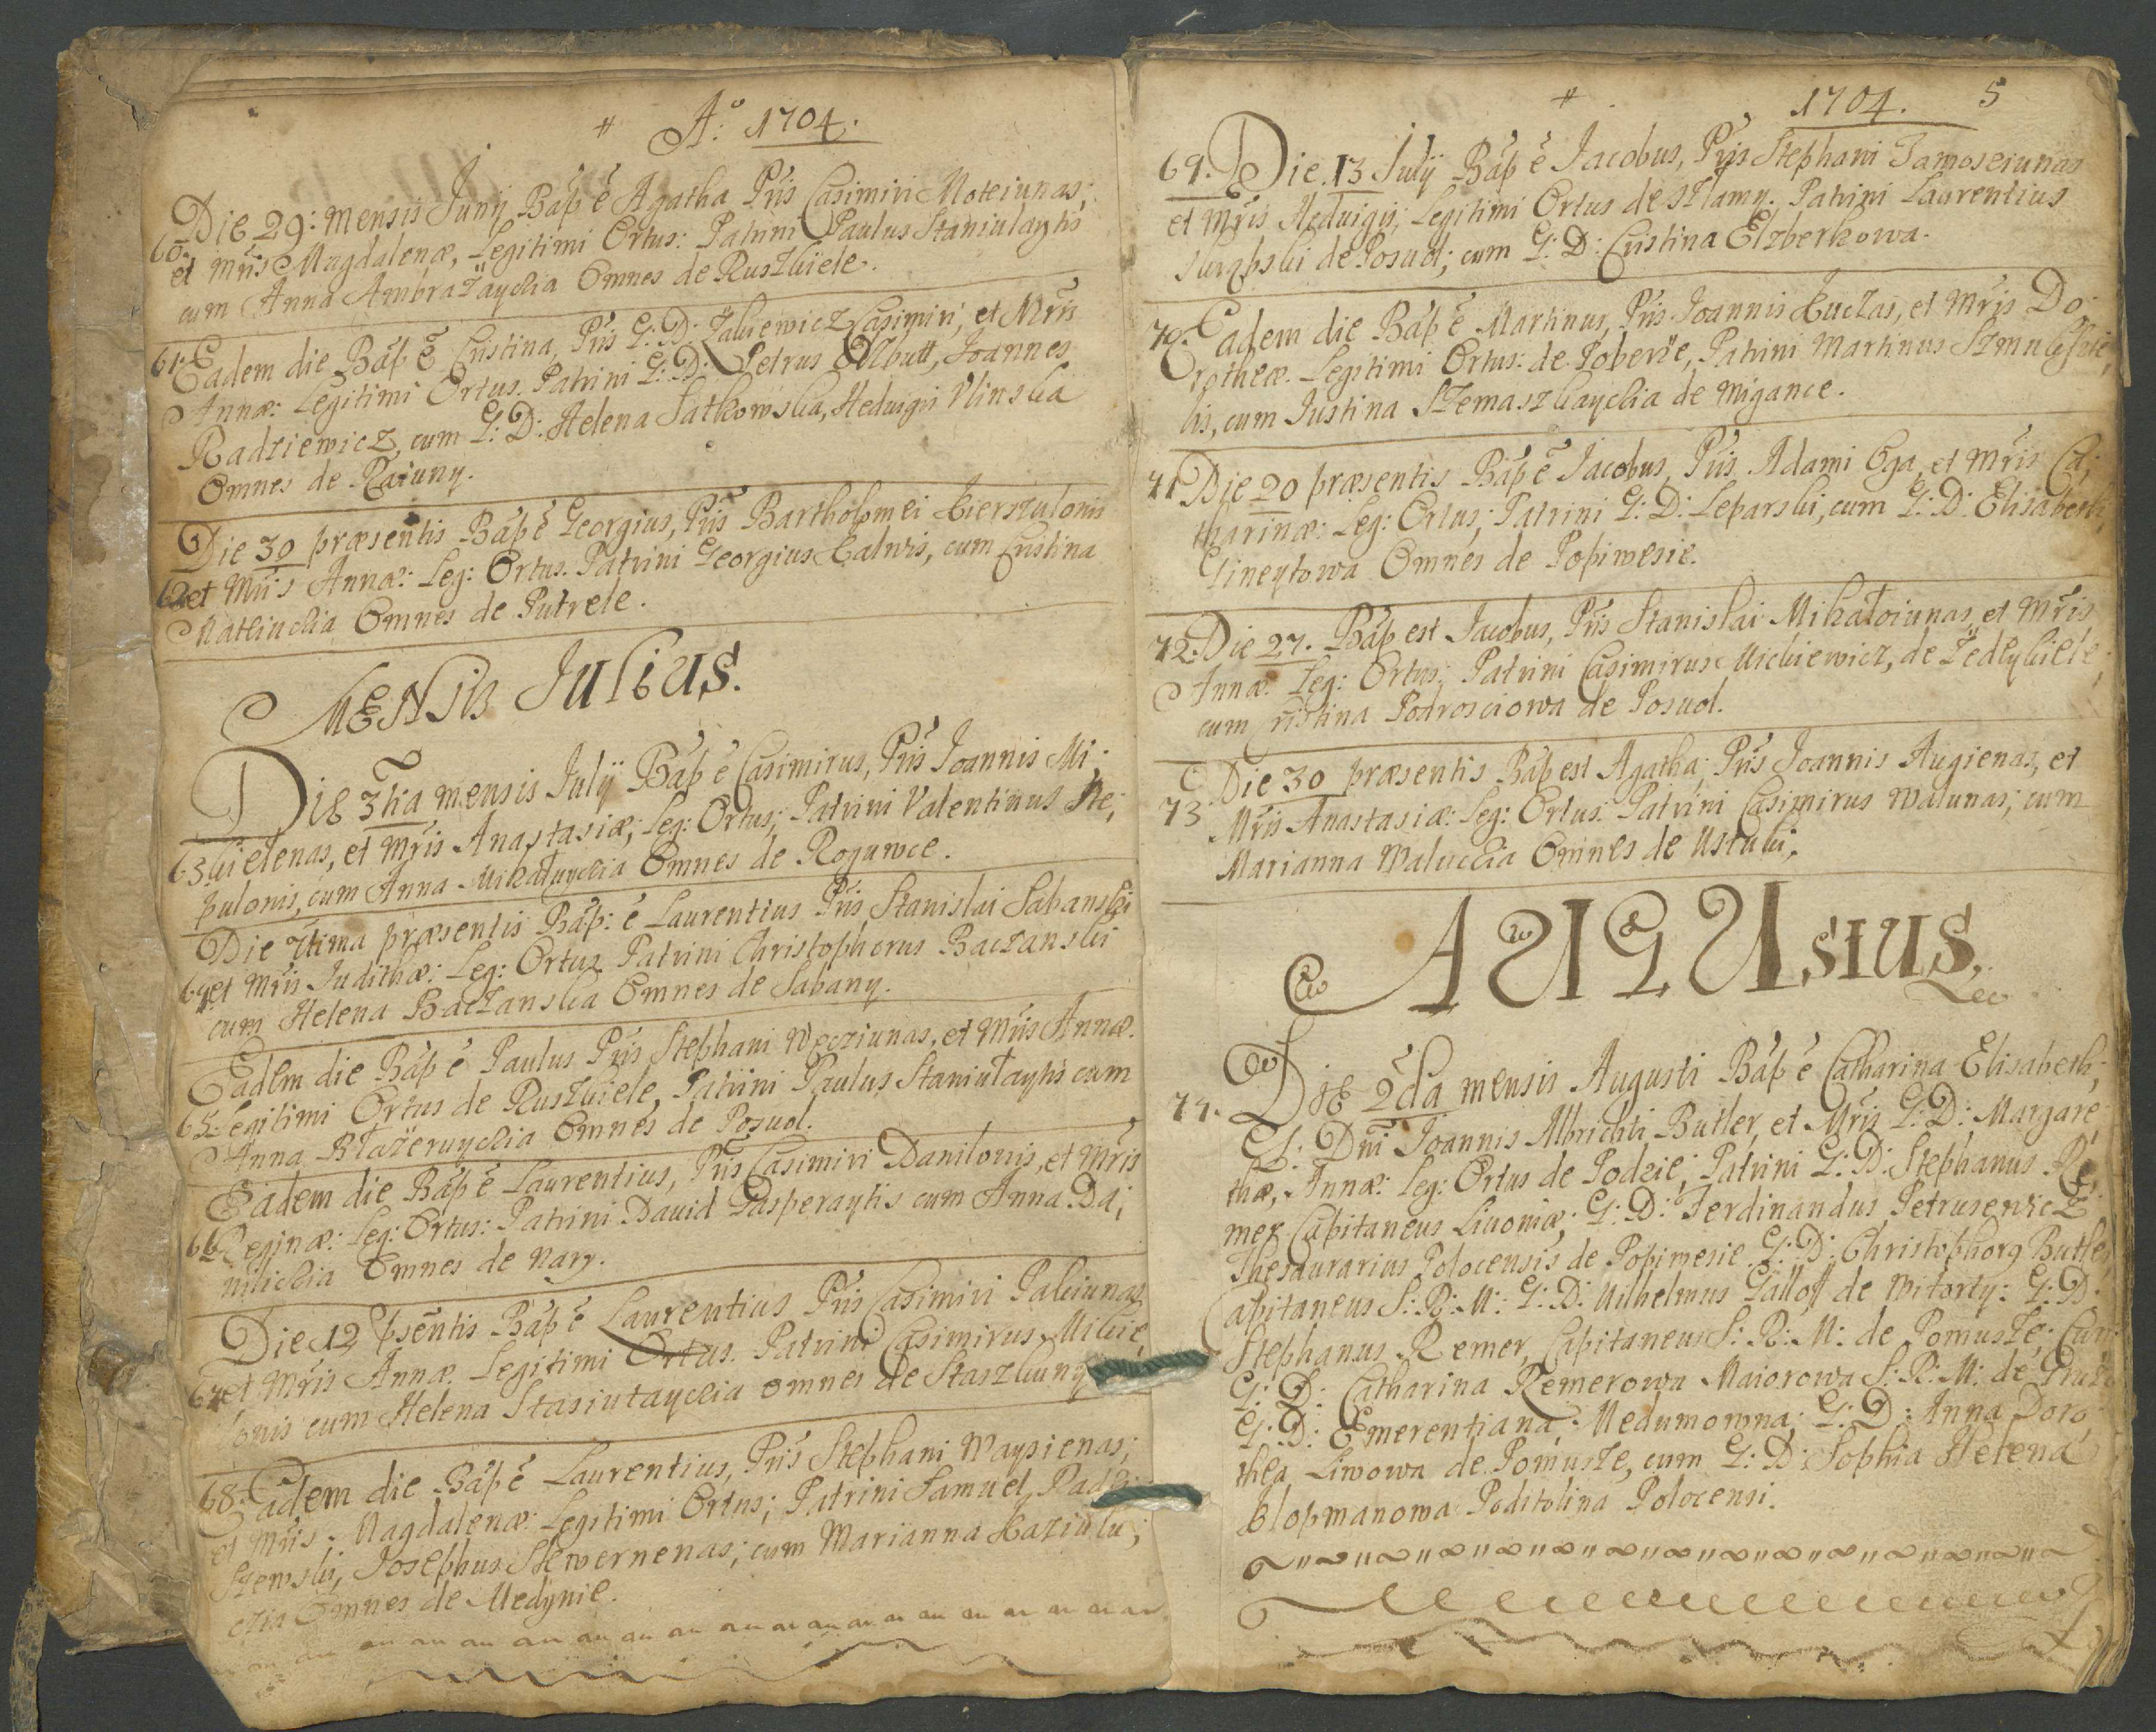 # Aº: 1704.
Die 29: mensis Junij Bap ẽ Agatha Pris Casimiri Moteiunas;
60. et Mris Magdalenæ, Legitimi Ortus: Patrini Paulus Staniulaytis
cum Anna Ambrażayckia Omnes de Ruszkiele.
61. Eadem die Bap ẽ Cristina, Pris G: D: Żakiewicz Casimiri, et Mris
Annæ: Legitimi Ortus. Patrini G: D: Petrus Olbutt, Joannes
Radziewicz, cum G: D: Helena Jatkowska, Hedvigis Vlinska
Omnes de Raiuny.
Die 30 præsentis Bap ẽ Georgius, Pris Bartholomei Kierszulonis
62. et Mris Annæ: Leg: Ortus. Patrini Georgius Kalwis, cum Cristina
Matkiuckia Omnes de Putrele.
MENSIS JULIUS.
Die 3tia mensis Julij Bap ẽ Casimirus, Pris Joannis Mi;
63. kielenas, et Mris Anastasiæ; Leg: Ortus; Patrini Valentinus Ste;
pulonis, cum Anna Mikałuyckia Omnes de Roguwce.
Die 7tima præsentis Bap: ẽ Laurentius Pris Stanislai Sabanski
64. et Mris Judithæ: Leg: Ortus. Patrini Christophorus Baczanski
cum Helena Baczanska Omnes de Sabany.
Eadem die Bap ẽ Paulus Pris Stephani Wecziunas, et Mris Annæ.
65. Legitimi Ortus de Ruszkiele, Patrini Paulus Staniułaytis cum
Anna Błażeruyckia Omnes de Posuol.
Eadem die Bap ẽ Laurentius, Pris Casimiri Danilonis, et Mris
66. Reginæ: Leg: Ortus: Patrini Dauid Gasperaytis cum Anna Da;
nilickia Omnes de Nary.
Die 12 psentis Bap ẽ Laurentius Pris Casimiri Pakiunas
67. et Mris Annæ. Legitimi Ortus. Patrini Casimirus Mikie,
lonis cum Helena Stasiutayckia omnes de Staszkuny
68. Eadem die Bap ẽ Laurentius, Pris Stephani Waysienas;
et Mris Magdalenæ: Legitimi Ortus; Patrini Samuel Radzi
szewski, Josephus Stewernenas; cum Marianna Kaziulu;
ckia Omnes de Medynie.
# 1704. 5
69. Die 13 Julij Bap ẽ Jacobus, Pris Stephani Tamoseiunas
et Mris Hedvigis; Legitimi Ortus de Szłamy. Patrini Laurentius
de Posuol; cum G: D: Cristina Elzberkowa.
70. Eadem die Bap ẽ Martinus, Pris Joannis Kuczas, et Mris Do;
rotheæ. Legitimi Ortus: de Poberże, Patrini Martinus
lis, cum Justina Szemaszkayckia de Migance.
71 Die 20 præsentis Bap ẽ Jacobus, Pris Adami Oga, et Mris Ca;
tharinæ: Leg: Ortus; Patrini G: D: Leparski, cum G: D: Elisabeth
Gineytowa Omnes de Popiwesie.
72. Die 27. Bap est Jacobus, Pris Stanislai Mikałoiunas, et Mris
Annæ. Leg: Ortus; Patrini Casimirus Mickiewicz, de Żedeykiele;
cum Cristina Podrosciowa de Posuol.
Die 30 præsentis Bap est Agatha; Pris Joannis Augienas, et
73. Mris Anastasiæ: Leg: Ortus. Patrini Casimirus Walunas; cum
Marianna Waluckia Omnes de Ustuki;
AUGUSTUS.
74. Die 2da mensis Augusti Bap ẽ Catharina Elisabeth;
G: Dni Joannis Albrichti Butler, et Mris G: D: Margare
thæ, Annæ: Leg: Ortus de Podzie; Patrini G: D: Stephanus Re,
mer Capitaneus Livoniæ; G: D: Ferdinandus Petrusewicz
Thesaurarius Polocensis de Popiwesie. G: D: Christophorg Butler
Capitaneus S: R: M: G: D: Wilhelmus Gałłoff de Witorty: G: D:
Stephanus Remer, Capitaneus S: R: M: de Pomusze; Cum
G: D: Catharina Remerowa Maiorowa S: R: M: de
G: D: Emerentiana, Medumowna; G: D: Anna Doro
thea Liwowa de Pomusze, cum G: D: Sophia Helena
Klopmanowa Podstolina Polocensi.